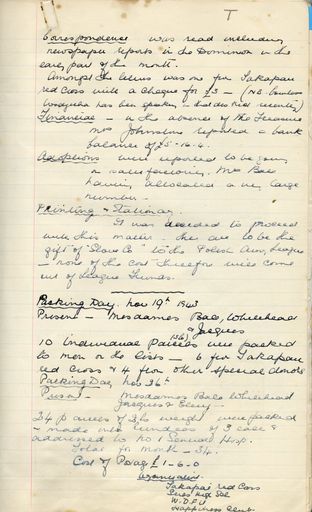 T
Correspondence was read including
newspaper reports in the Dominion in the
early part of the month.
Amongst the letters was one from Takapau
red Cross with a cheque for £3 — (NB
has been spoken
Financial — in the absence of the Treasurer
Mrs Johnston reported a bank
balance of £5-16-4.
Adoptions were reported to be
Mrs Bale
having allocated a very large
number.
Printing & Stationary.
It was decided to proceed
with this matter. the to be the
gift of to the Polish Army League
— none of the cost therefor will come
out of League Funds.
Packing Day. Nov 19th 1943
Present — Mesdames Bale, Whitehead
& Jacques
10 individual Parcels were packed
to men on the lists — 6 from Takapau
red Cross & 4 from other special donors
Packing Day, Nov 26th
Present — Mesdames Bale Whitehead
Jacques &
34 parcels of 3 lb weight were packed
— made into bundles of 3 each &
addressed to No 1 General Hosp.
Total for month — 34.
Cost of Postage £1-6-0
Takapau red Cross
W.D.F.U
Happiness Club